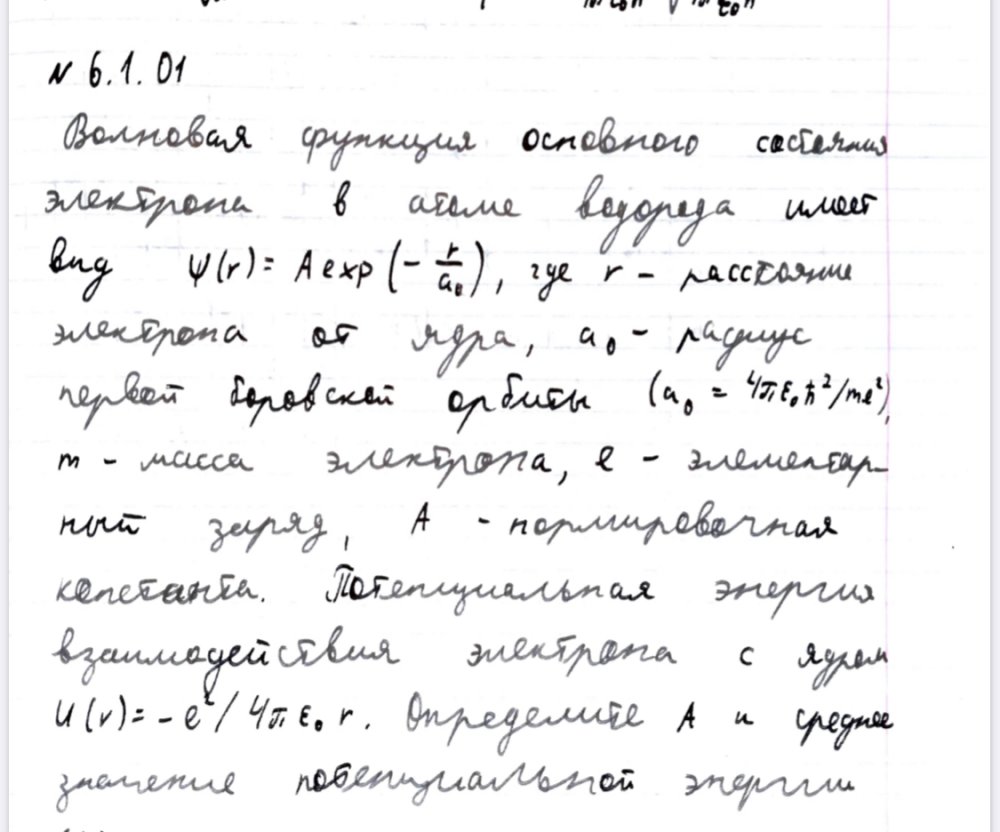 N 6.1.01
Волновая функция основного состояния
электрона в атоме водорода имеет
вид ψ(r) = A exp (- r/a₀), где r - расстояние
электрона от ядра, a₀ - радиус
первой боровской орбиты (a₀ = 4πε₀ħ²/me²),
m - масса электрона, e - элементар-
ный заряд, A - нормировочная
константа. Потенциальная энергия
взаимодействия электрона с ядром
U(r) = - e²/4πε₀ r. Определите A и среднее
значение потенциальной энергии